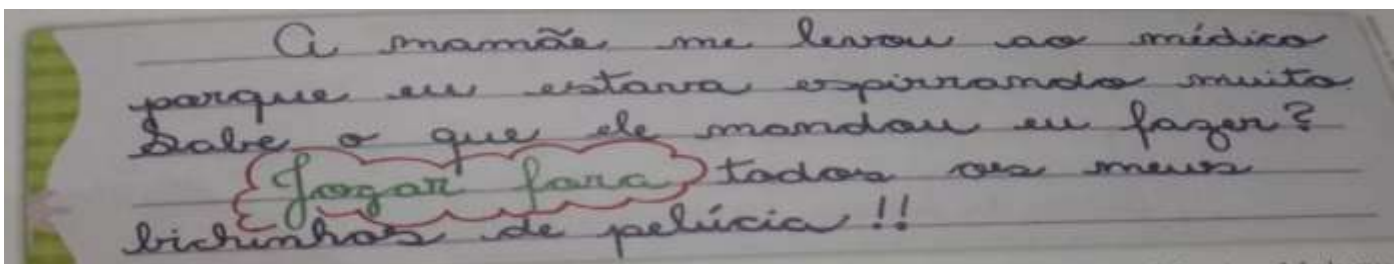 A mamãe me levou ao médico
porque eu estava espirrando muito.
Sabe o que ele mandou eu fazer?
Jogar fora todos os meus
bichinhos de pelúcia!!